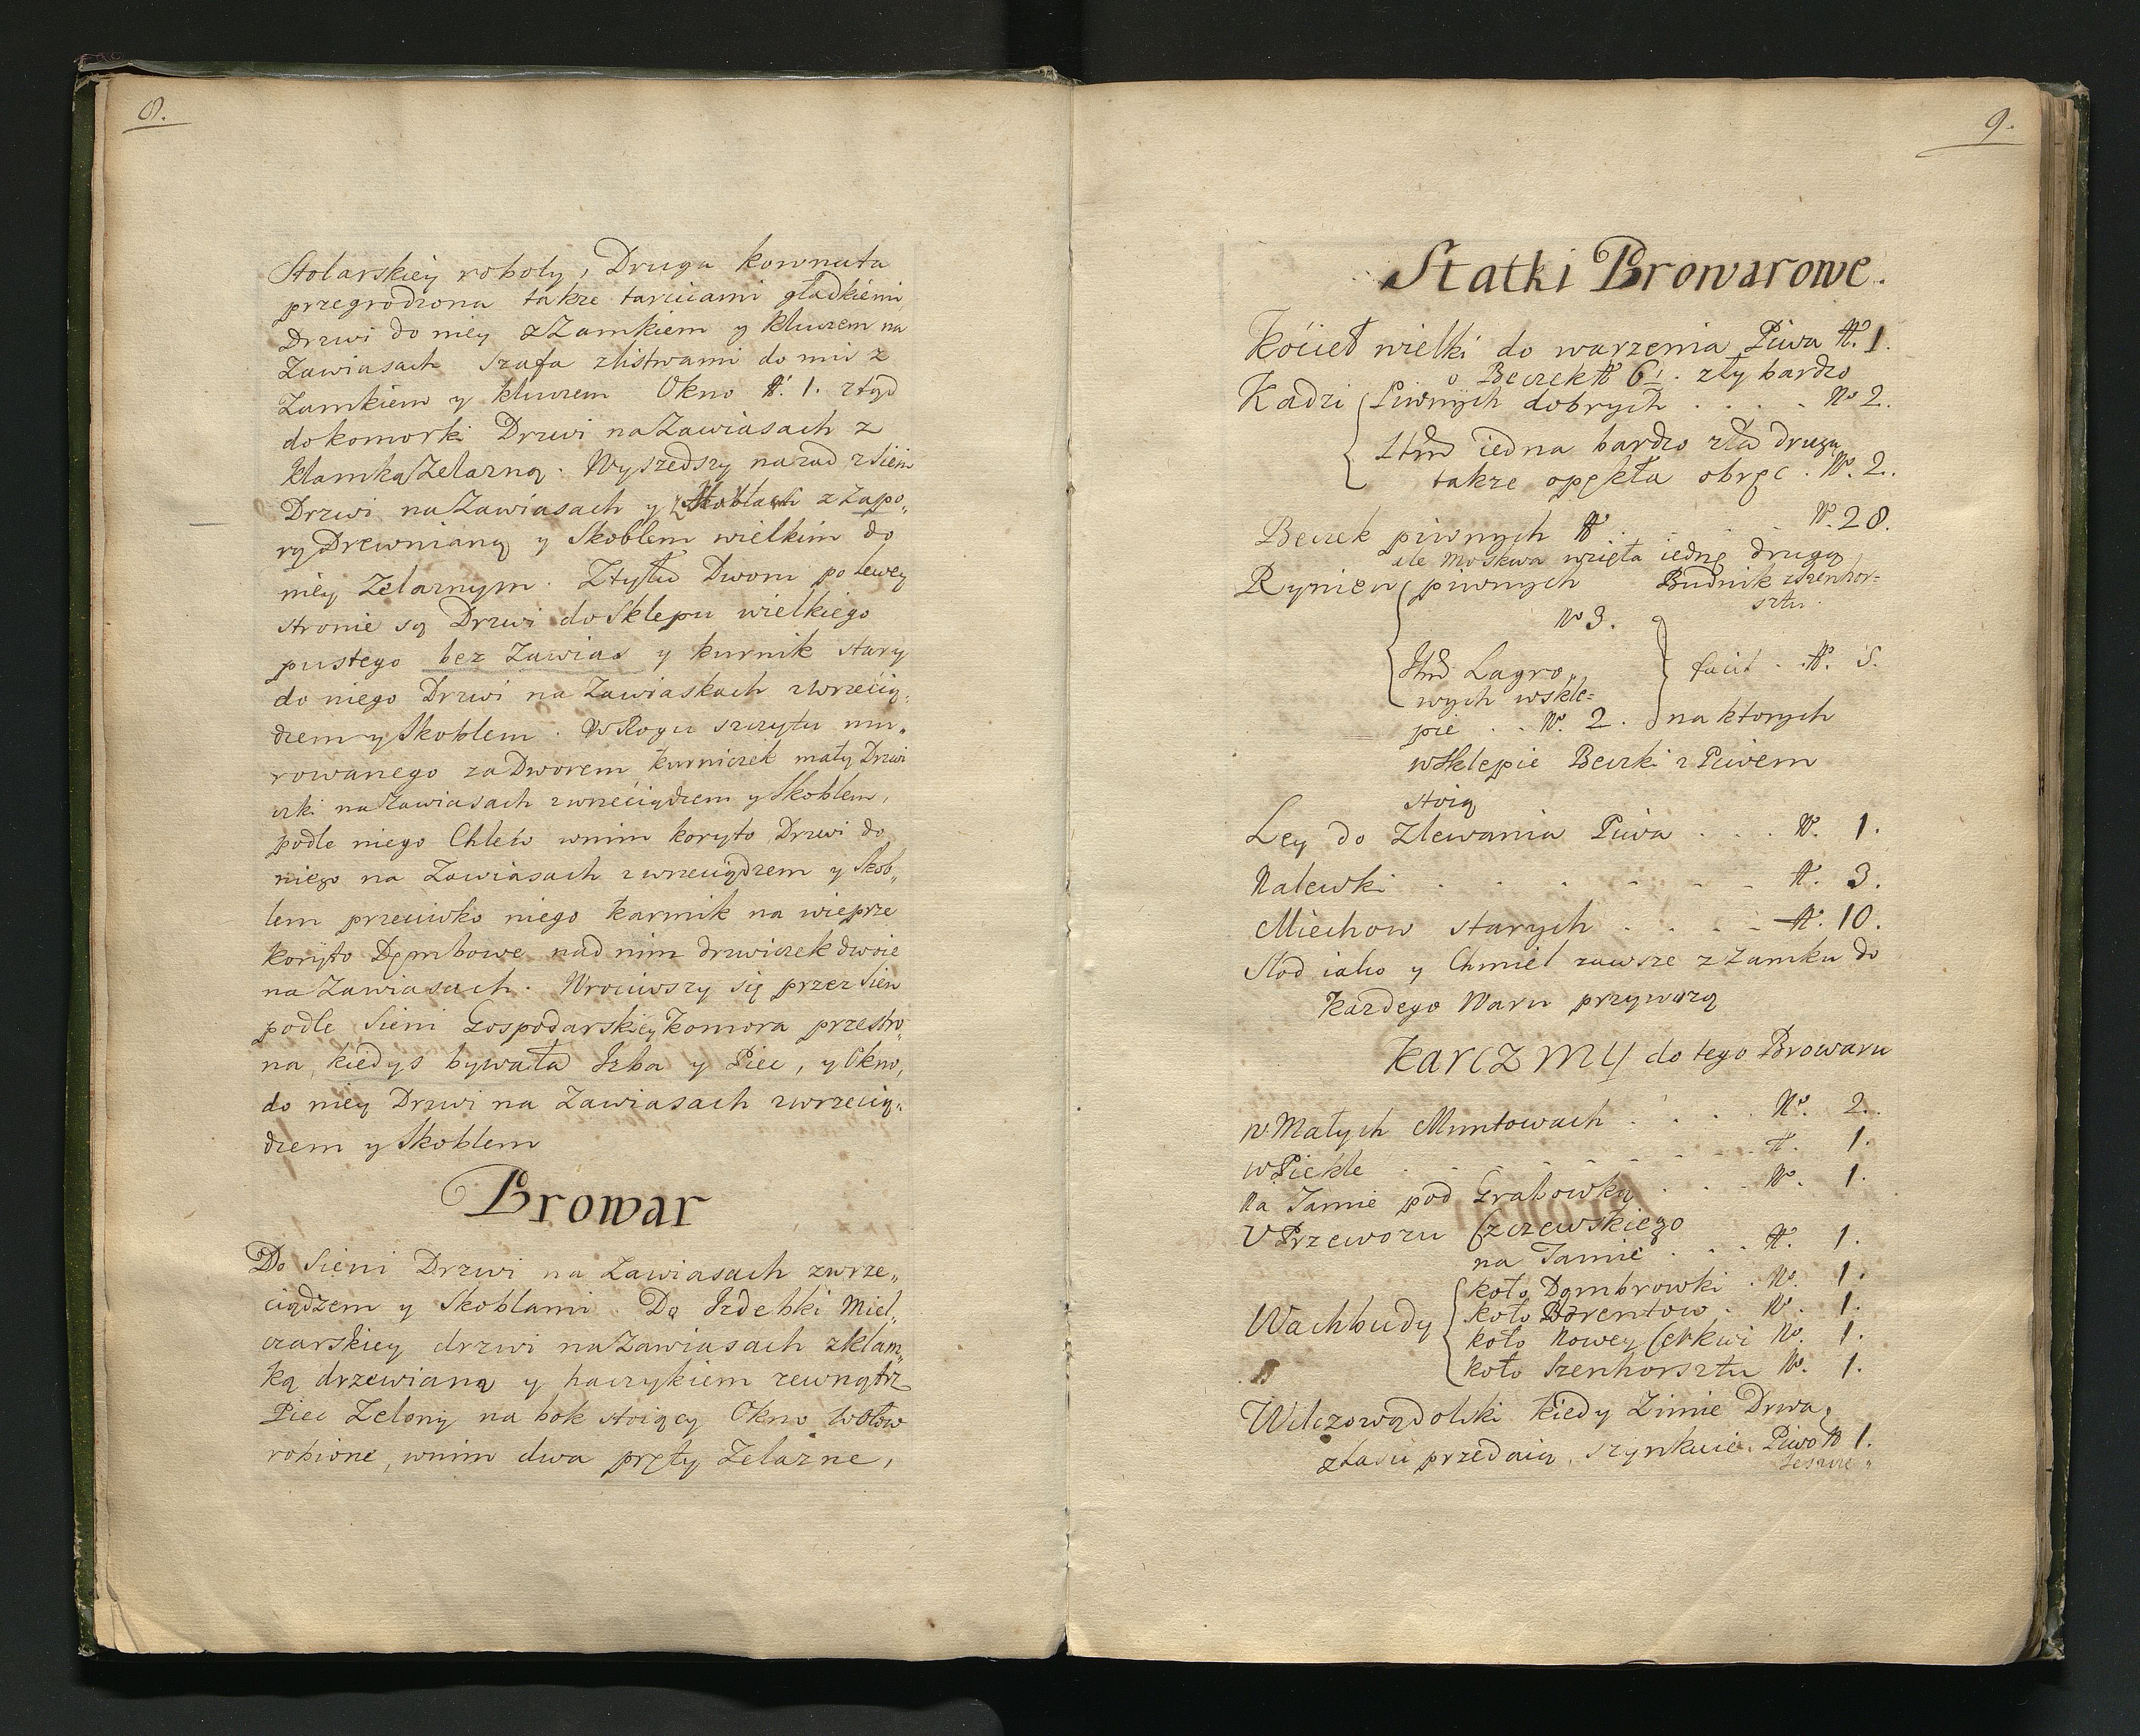 8.
Stolarskiey roboty, Druga komnata
przegrodzona takze tarcicami gładkiemi
Drzwi do niey z Zamkiem y kluczem na
Zawiasach Szafa z listwami do mis z
Zamkiem y kluczem Okno N. 1. ztąd
do komorki Drzwi na Zawiasach z
klamką Zelazną. Wyszedszy nazad z Sieni
Drzwi na Zawiasach y Skoblach z Zapo„
rą Drewnianą y Skoblem wielkim do
niey Zelaznym. Ztyłu Dworu po lewey
stronie są Drzwi do Sklepu wielkiego
pustego bez Zawias y kurnik stary
do niego Drzwi na Zawiaskach z wrzecią„
dzem y Skoblem. W Rogu szczytu mu„
rowanego za Dworem kurniczek mały Drzwi
czki na Zawiasach z wrzeciądzem y Skoblem,
podle niego Chlew w nim koryto Drzwi do
niego na Zawiasach z wrzeciądzem y Skob„
lem przeciwko niego karmik na wieprze
koryto Dębowe nad nim drzwiczek dwoie
na Zawiasach. Wrociwszy się przez Sień
podle Sieni Gospodarskiey komora przestro„
na, kiedys bywała Izba y Piec, y Okno,
do niey Drzwi na Zawiasach z wrzecią„
dzem y Skoblem
Browar
Do Sieni Drzwi na Zawiasach z wrze„
ciądzem y Skoblami. Do Izdebki Miel„
czarskiey drzwi na Zawiasach z klam„
ką drzewianą y haczykiem zewnątrz
Piec Zelony na bok stoiący Okno w ołow
robione, w nim dwa pręty Zelazne,
9.
Statki Browarowe.
Kocieł wielki do warzenia Piwa N. 1.
o Beczek N 6½. zły bardzo
Kadzi Piwnych dobrych . . . . No 2.
Itm iedna bardzo zła druga
takze opękła obręc . No. 2.
Beczek piwnych N . . . . No. 28.
ale Moskwa wzięła iednę drugą
Rynien piwnych Budnik z Szenhor=
sztu.
No 3.
Itm Lagro„
wych w skle=
facit . . N. 5.
pie . . No. 2. na ktorych
w Sklepie Beczki z Piwem
stoią
Ley do Zlewania Piwa . . . N. 1.
Nalewki . . . . . . . N. 3.
Miechow starych . . . . N. 10.
Słod iako y Chmiel zawsze z Zamku do
kazdego Waru przywozą
KarCZMY do tego Browaru
w Małych Muntowach . . . . No. 2.
w Piekle . . . . . . . . N. 1.
Na Tamie pod Grabowką . . . No. 1.
U Przewozu Czczewskiego
na Tamie . . . N. 1.
koło Dąmbrowki . No. 1.
Wachbudy koło Borentow . No. 1.
koło Nowey Cerkwi No. 1.
koło Szenhorsztu No. 1.
Wilczowądolski kiedy Zimie Drwa
z Lasu przedaią, szynkuie Piwo N 1.